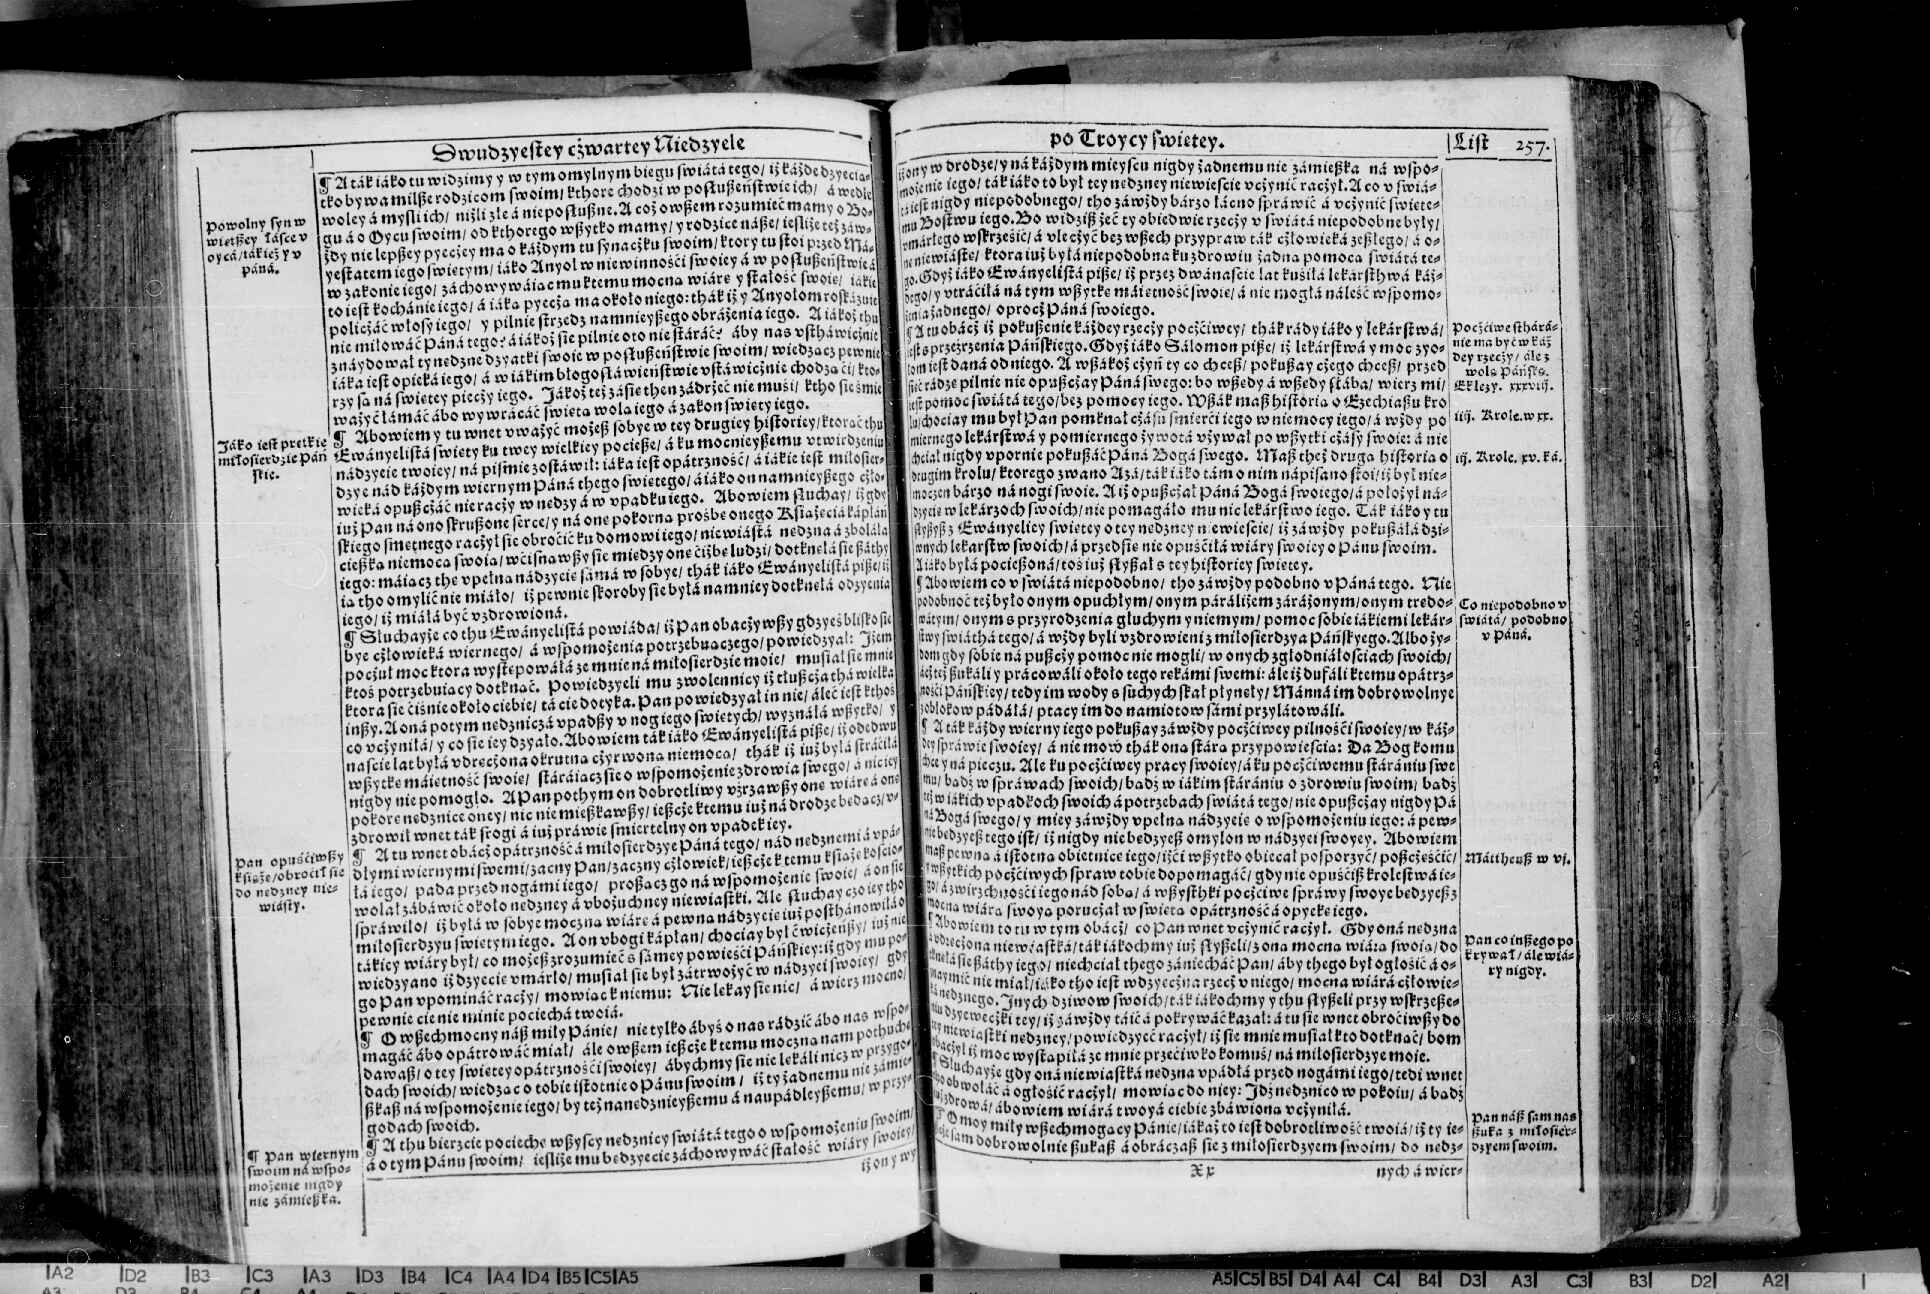 Dwudzyestey czwartey Niedzyele
Powolny syn w
wietßey łásce v
oycá/ták ież y v
páná.
Jáko iest pretkie
miłosierdzie Pań
skie.
Pan opuśćiwßy
książe/obroćił sie
do nedzney nie-
wiásty.
¶ Pan wiernym
swoim ná wspo-
możenie nigdy
nie zámießka.
¶ A ták iáko tu widzimy y w tym omylnym biegu świátá tego/ iż każde dzyecia-
tko bywa milße rodzicom swoim/ kthore chodzi w posłußeństwie ich/ á wedle
woley á myśli ich/ niżli złe á nieposłußne. A coż owßem rozumieć mamy o Bo-
gu á o Oycu swoim/ od kthorego wßytko mamy/ y rodzice náße/ iesliże też záw-
żdy nie lepßey pyeczey ma o káżdym tu synaczku swoim/ ktory tu stoi przed Má-
yestatem iego świetym/ iáko Anyoł w niewinnośći swoiey á w posłußeństwie á
w zakonie iego/ záchowywáiac mu ktemu mocna wiáre y stałość swoie/ iákie
to iest kochánie iego/ á iáka pyecża ma około niego: thák iż y Anyołom roskázuie
policżáć włosy iego/ y pilnie strzedz namnieyßego obráżenia iego. A iákoż thu
nie miłowáć Páná tego? á iákoż sie pilnie o to nie stáráć? áby nas vstháwicżnie
znáydował ty nedzne dzyatki swoie w posłußeństwie swoim/ wiedzacz pewnie
iáka iest opieká iego/ á w iákim błogosłáwieństwie vstáwicżnie chodza ći/ kto-
rzy są ná świetey pieczy iego. Jákoż też zásie then zádrżeć nie muśi/ ktho sie śmie
ważyć łamáć ábo wywrácáć świeta wola iego á zakon świety iego.
¶ Abowiem y tu wnet vważyć możeß sobye w tey drugiey historiey/ ktorać thu
Ewányelistá świety ku twey wielkiey pocieße/ á ku mocnieyßemu vtwirdzeniu
nádzyeie twoiey/ ná piśmie zostáwił: iáka iest opátrzność/ á iákie iest miłosier-
dzye nád káżdym wiernym Páná thego świetego/ á iáko on namnieyßego cżło-
wieká opußcżáć nie racży w nedzy á w vpadku iego. Abowiem słuchay/ iż gdy
iuż Pan ná ono skrußone serce/ y ná one pokorna prośbe onego Książecia kápłań
skiego smetnego racżył sie obroćić ku domowi iego/ niewiástá nedzna á zbolála
cießka niemoca swoia/ wćisnąwßy sie miedzy one ćiżbe ludzi/ dotknelá sie ßáthy
iego: máiacz the vpełna nádzyeie sámá w sobye/ thák iáko Ewányelistá piße/ iż
ia tho omylić nie miáło/ iż pewnie skoroby sie byłá namniey dotknelá odzyenia
iego/ iż miáłá być vzdrowioná.
¶ Słuchayże co thu Ewányelistá powiáda/ iż Pan obacżywßy gdzyeś blisko sie
bye cżłowieká wiernego/ á wspomożenia potrzebuaczego/ powiedzyał: Jżem
pocżuł moc ktora wystepowáłá ze mnie ná miłosierdzie moie/ musiał sie mnie
ktoś potrzebuiacy dotknáć. Powiedzyeli mu zwolennicy iż tłußcża thá wielka
ktora sie ćiśnie około ciebie/ tá cie dotyka. Pan powiedzyał in nie/ áleć iest kthoś
inßy. A oná potym nedznicżá vpadßy v nog iego świetych/ wyználá wßytko/ y
co vcżyniłá/ y co sie iey dzyało. Abowiem ták iáko Ewányelistá piße/ iż ode dwu
naście lat byłá vdrecżona okrutna cżyrwona niemoca/ thák iż iuż byłá stráciłá
wßytke máietność swoie/ stáráiacz sie o wspomożenie zdrowia swego/ á nic iey
nigdy nie pomogło. A Pan pothym on dobrotliwy vźrzawßy one wiáre á one
pokore nedznice oney/ nic nie mießkawßy/ ießcże ktemu iuż ná drodze bedacz/ v-
zdrowił wnet ták srogi á iuż práwie śmiertelny on vpadek iey.
¶ A tu wnet obácż opátrzność á miłosierdzye Páná tego/ nád nedznemi á vpá-
dłymi wiernymi swemi/ zacny Pan/ zacżny cżłowiek/ ießcże k temu książe kościo-
łá iego/ páda przed nogámi iego/ proßacz go ná wspomożenie swoie/ á on sie
wolał zábáwić około nedzney á vbożuchney niewiástki. Ale słuchay czo iey tho
spráwiło/ iż byłá w sobye mocżna wiáre á pewna nádzyeie iuż posthánowiłá o
miłosierdzyu świetym iego. A on vbogi kápłan/ chociay był ćwicżeńßy/ iuż nie
tákiey wiáry był/ co możeß zrozumieć s sámey powieśći Páńskiey: iż gdy mu po-
wiedzyano iż dzyecie vmárło/ musiał sie był zátrwożyć w nádzyei swoiey/ gdy
go Pan vpomináć racży/ mowiac k niemu: Nie lekay sie nic/ á wierz mocno/
pewnie cie nie minie pociechá twoiá.
¶ O wßechmocny náß miły Pánie/ nie tylko ábyś o nas rádzić ábo nas wspo-
magáć ábo opátrowáć miał/ ále owßem ießcże k temu mocżna nam pothuche
dawaß/ o tey świetey opátrznośći swoiey/ ábychmy sie nie lekáli nicz w przygo-
dach swoich/ wiedzac o tobie istotnie o Pánu swoim/ iż ty żadnemu nie zámie-
ßkaß ná wspomożenie iego/ by też nanedznieyßemu á naupádleyßemu/ w przy-
godach swoich.
¶ A thu bierzcie pocieche wßyscy nedznicy świátá tego o wspomożeniu swoim/
á o tym Pánu swoim/ iesliże mu bedzyecie záchowywáć stałość wiáry swoiey/
iż on y wy
po Troycy swietey.
List 257.
iż on y w drodze/ y ná káżdym mieyscu nigdy żadnemu nie zámießka ná wspo-
możenie iego/ ták iáko to był tey nedzney niewieście vcżynić racżył. A co v świá-
tá iest nigdy niepodobnego/ tho záwżdy bárzo łácno spráwić á vcżynić świete-
mu Bostwu iego. Bo widziß żeć ty obiedwie rzecży v świátá niepodobne były/
vmárłego wskrześić/ á vlecżyć bez wßech przypraw ták cżłowieká zeßłego/ á o-
ne niewiáste/ ktora iuż byłá niepodobna ku zdrowiu żadna pomoca świátá te-
go. Gdyż iáko Ewányelistá piße/ iż przez dwánaście lat kuśiłá lekársthwá káż-
dego/ y vtráciłá ná tym wßytke máietność swoie/ á nie mogłá náleść wspomo-
żenia żadnego/ oprocż Páná swoiego.
¶ A tu obácż iż pokußenie káżdey rzecży pocżćiwey/ thák rády iáko y lekárstwá/
iest s przeźrzenia Páńskiego. Gdyż iáko Sálomon piße/ iż lekárstwá y moc zyo-
łom iest daná od niego. A wßákoż cżyń ty co chceß/ pokußay cżego chceß/ przed
śię rádze pilnie nie opußcżay Páná swego: bo wßedy á wßedy słába/ wierz mi/
iest pomoc świátá tego/ bez pomocy iego. Wßák maß historia o Ezechiaßu kro
lu/ chociay mu był Pan pomknał cżásu śmierći iego w niemocy iego/ á wżdy po
miernego lekárstwá y pomiernego żywotá vżywał po wßytki cżásy swoie: á nie
chciał nigdy vpornie pokußáć Páná Bogá swego. Maß theż druga historia o
drugim krolu/ ktorego zwano Azá/ ták iáko tám o nim nápisano stoi/ iż był nie-
mocżen bárzo ná nogi swoie. A iż opußcżał Páná Bogá swoiego/ á położył ná-
dzyeie w lekárzoch swoich/ nie pomagáło mu nic lekárstwo iego. Ták iáko y tu
słyßyß z Ewányeliey świetey o tey nedzney niewieście/ iż záwżdy pokußáłá dzi-
wnych lekarstw swoich/ á przedsie nie opuśćiłá wiáry swoiey o Pánu swoim.
A iáko byłá pocießoná/ toś iuż słyßał s tey historiey świetey.
¶ Abowiem co v świátá niepodobno/ tho záwżdy podobno v Páná tego. Nie
podobnoć też było onym opuchłym/ onym páráliżem zárażonym/ onym trędo-
wátym/ onym s przyrodzenia głuchym y niemym/ pomoc sobie iákiemi lekár-
stwy świáthá tego/ á wżdy byli vzdrowieni z miłosierdzya Páńskyego. Albo ży-
dom gdy sobie ná pußcży pomoc nie mogli/ w onych zgłodniáłościach swoich/
ácż też ßukáli y prácowáli około tego rekámi swemi: ále iż dufáli ktemu opátrz-
nośći Páńskiey/ tedy im wody s suchych skał płynęły/ Mánná im dobrowolnye
z obłokow pádáłá/ ptacy im do namiotow sámi przylátowáli.
¶ A ták káżdy wierny iego pokußay záwżdy pocżćiwey pilnośći swoiey/ w káż-
dey spráwie swoiey/ á nie mow thák oná stára przypowieścia: Da Bog komu
chce y ná pieczu. Ale ku pocżćiwey pracy swoiey/ á ku pocżćiwemu stárániu swe
mu/ badź w spráwach swoich/ badź w iákim stárániu o zdrowiu swoim/ badź
też w iákich vpadkoch swoich á potrzebach świátá tego/ nie opußcżay nigdy Pá
ná Bogá swego/ y miey záwżdy vpełna nádzyeie o wspomożeniu iego: á pew-
nie bedzyeß tego ist/ iż nigdy nie bedzyeß omylon w nádzyei swoyey. Abowiem
maß pewna á istotna obietnice iego/ iżći wßytko obiecał posporzyć/ poßcżeśćić/
y wßytkich pocżćiwych spraw tobie dopomagáć/ gdy nie opuśćiß krolestwá ie-
go/ á zwirzchnośći iego nád soba/ á wßysthki pocżćiwe spráwy swoye bedzyeß z
mocna wiára swoya porucżał w świeta opátrzność á opyeke iego.
¶ Abowiem to tu w tym obácż/ co Pan wnet vcżynić racżył. Gdy oná nedzna
á vdrecżona niewiástká/ ták iákochmy iuż słyßeli/ z ona mocna wiára swoia/ do
tknełá sie ßáthy iego/ niechciał thego zániecháć Pan/ áby thego był ogłośić á o-
znaymić nie miał/ iáko tho iest wdzyecżna rzecż v niego/ mocna wiárá cżłowie-
ká nedznego. Jnych dziwow swoich/ ták iákochmy y thu słyßeli przy wskrzeße-
niu dzyewecżki tey/ iż záwżdy táić á pokrywáć kazał: á tu sie wnet obroćiwßy do
tey niewiástki nedzney/ powiedzyeć racżył/ iż sie mnie musiał kto dotknáć/ bom
obacżył iż moc wystapiłá ze mnie przećiwko komuś/ ná miłosierdzye moie.
¶ Słuchayże gdy oná niewiástká nedzna vpádłá przed nogámi iego/ tedi wnet
iego obwołáć á ogłośić racżył/ mowiac do niey: Jdź nedznico w pokoiu/ á badź
iuż zdrowá/ ábowiem wiárá twoyá ciebie zbáwiona vcżyniłá.
¶ O moy miły wßechmogacy Pánie/ iákaż to iest dobrotliwość twoiá/ iż ty ie-
ßcże sam dobrowolnie ßukaß á obracaß sie z miłosierdzyem swoim/ do nedz-
Xx nych á wier-
Pocżćiwe sthárá-
nie ma być w káż
dey rzecży/ ále z
wolą Páńską.
Eklezy. xxxviij.
iiij. Krole. w xx.
iij. Krole. xv. ká.
Co niepodobno v
świátá/ podobno
v Páná.
Mattheuß w vj.
Pan co inßego po
krywał/ ále wiá-
ry nigdy.
Pan náß sam nas
ßuka z miłosier-
dzyem swoim.
A2 D2 B3 C3 A3 D3 B4 C4 A4 D4 B5 C5 A5
A5 C5 B5 D4 A4 C4 B4 D3 A3 C3 B3 D2 A2